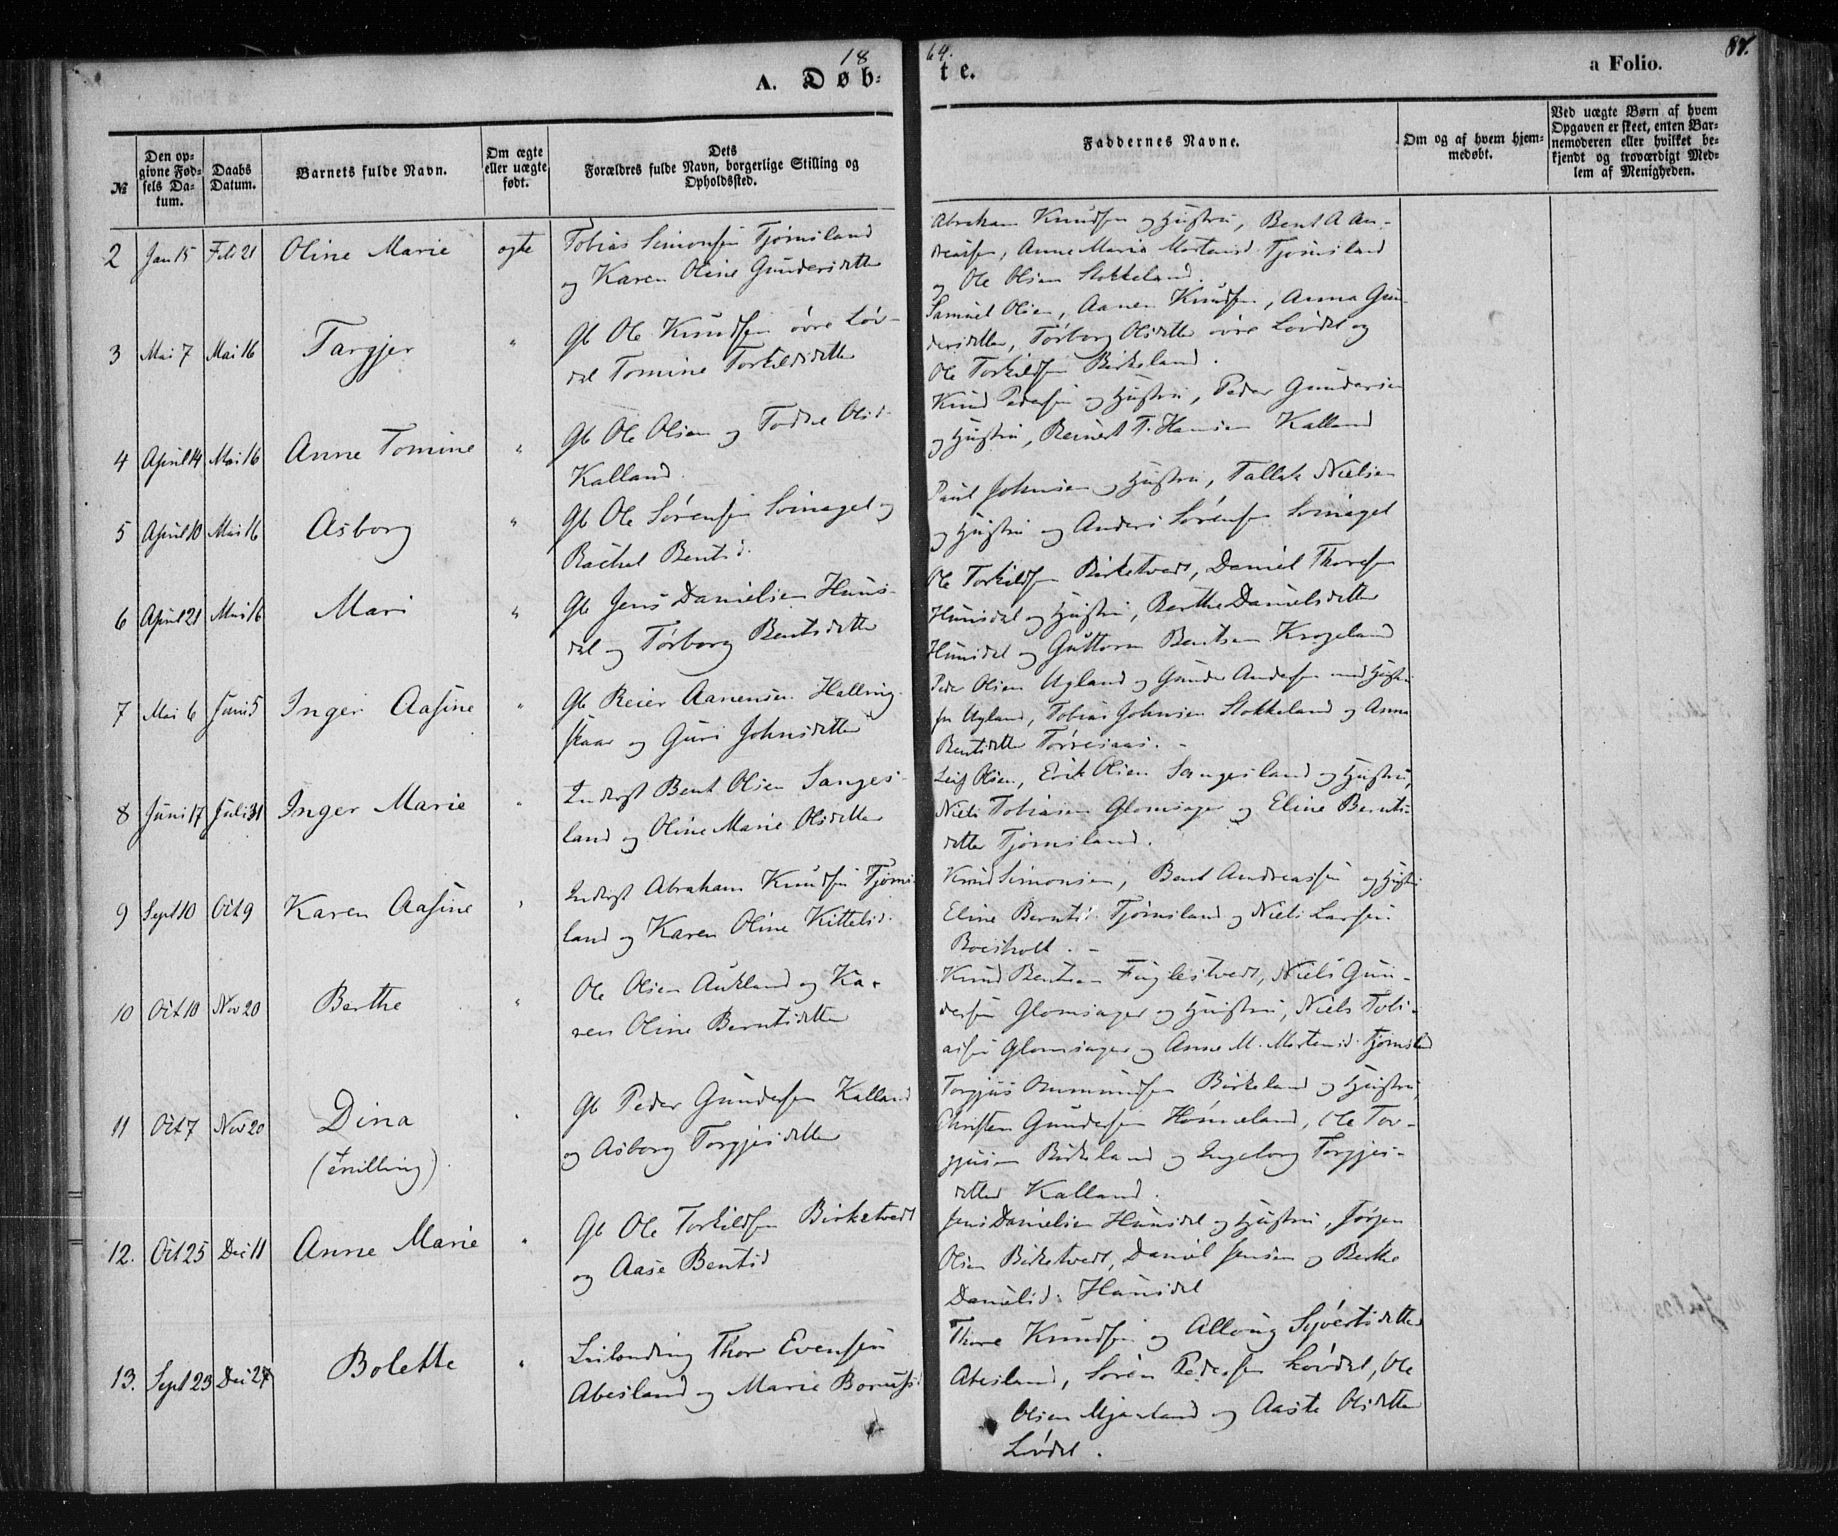 18
64.
87.
A. Døb=
te.
a Folio.
№
Den op-
givne Fød-
sels Da-
tum.
Daabs
Datum.
Barnets fulde Navn.
Om ægte
eller uægte
født.
Dets
Forældres fulde Navn, borgerlige Stilling og
Opholdssted.
Faddernes Navne.
Om og af hvem hjem-
medøbt.
Ved uægte Børn af hvem
Opgaven er skeet, enten Bar-
nemoderen eller hvilket be-
kjendt og troværdigt Med-
lem af Menigheden.
2 Jan 15 Feb 21 Oline Marie ægte
Tobias Simonsen Tjømsland
og Karen Oline Gundersdatter
Abraham Knudsen og Hustru, Bent A An-
dreasen, Anne Marie Mortensd. Tjomsland
og Ole Olsen Stokkeland.
3 Mai 7 Mai 16 Targjer "
Gb Ole Knudsen øvre Løv-
dal Tomine Torkildsdatter
Samuel Olsen, Aanen Knudsen, Anna Gun-
dersdatter, Tørborg Olsdatter øvre Løvdal og
Ole Torkildsen Birkeland.
4 April 14 Mai 16 Anne Tomine "
Gb Ole Olsen og Olsd.
Kalland.
Knud Pedersen og Hustru, Peder Gundersen
og Hustru, Reinert T. Hansen Kalland
5 April 10 Mai 16 Asborg "
Gb Ole Sørensen Svinaget og
Rachel Bentsd.
Paul Johnsen og Hustru, Tallak Nielsen
og Hustru og Anders Sørensen Svinaget
6 April 21 Mai 16 Mari "
Gb Jens Danielsen Huns-
dal og Tørborg Bentsdatter
Ole Torkildsen Birketvedt, Daniel Thoresen
Hunsdal og Hustru, Berthe Danielsdatter
Hunsdal og Guttorm Bentsen Krogeland
7 Mai 6 Juni 5 Inger Aasine "
Gb Reier Aanensen Halling-
skaar og Guri Johnsdatter
Peder Olsen Ugland og Gunder Andersen med Hustru
Ugland, Tobias Johnsen Stokkeland og Anna
Bentsdatter Tørresaas.
8 Juni 17 Juli 31 Inger Marie "
Inderst Bent Olsen Sanges-
land og Oline Marie Olsdatter
Leif Olsen, Erik Olsen Sangesland og Hustru,
Niels Tobiasen Glomsager og Eline Bernts-
datter Tjømsland.
9 Sept 10 Oct 9 Karen Aasine "
Inderst Abraham Knudsen Tjøms-
land og Karen Oline Kittelsd.
Knud Simonsen, Bent Andreassen og Hustru
Eline Berntsd. Tjømsland og Niels Larsen
10 Oct 10 Nov 20 Berthe "
Ole Olsen Aukland og Ka-
ren Oline Berntsdatter
Knud Bentsen Fuglestvedt, Niels Gun-
dersen Glomsager og Hustru, Niels Tobi-
asen Glomsager og Anne M. Mortensd. Tjømsld
11 Oct 7 Nov 20 Dina "
(tvilling).
Gb Peder Gundersen Kalland
og Asborg Torgjusdatter
Torgjus Aanundsen Birkeland og Hustru,
Christen Gundersen Homeland, Ole Tor-
gjusen Birkeland og Ingeborg Torgjus-
datter Kalland.
12. Oct 25 Dec 11 Anne Marie "
Gb Ole Torkildsen Birketvedt
og Aase Bentsd
Jens Danielsen Hunsdal og Hustru, Jørgen
Olsen Birketvedt, Daniel Jensen og Berthe
Danielsd. Hunsdal
13. Sept 23 Dec 27 Bolette "
Leilending Thor Evensen
Abesland og Marie
Thore Knudsen og Syvertsdatter
Abesland, Søren Pedersen Løvdal, Ole
Olsen Mjaaland og Aaste Olsdatter
Løvdal.